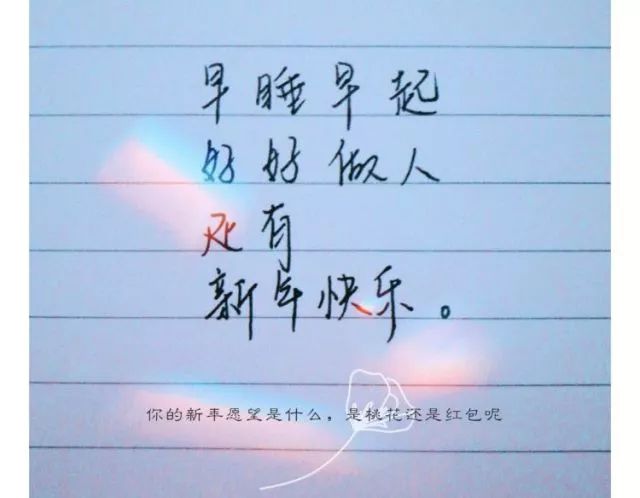 早睡早起
好好做人
还有
新年快乐。
你的新年愿望是什么，是桃花还是红包呢